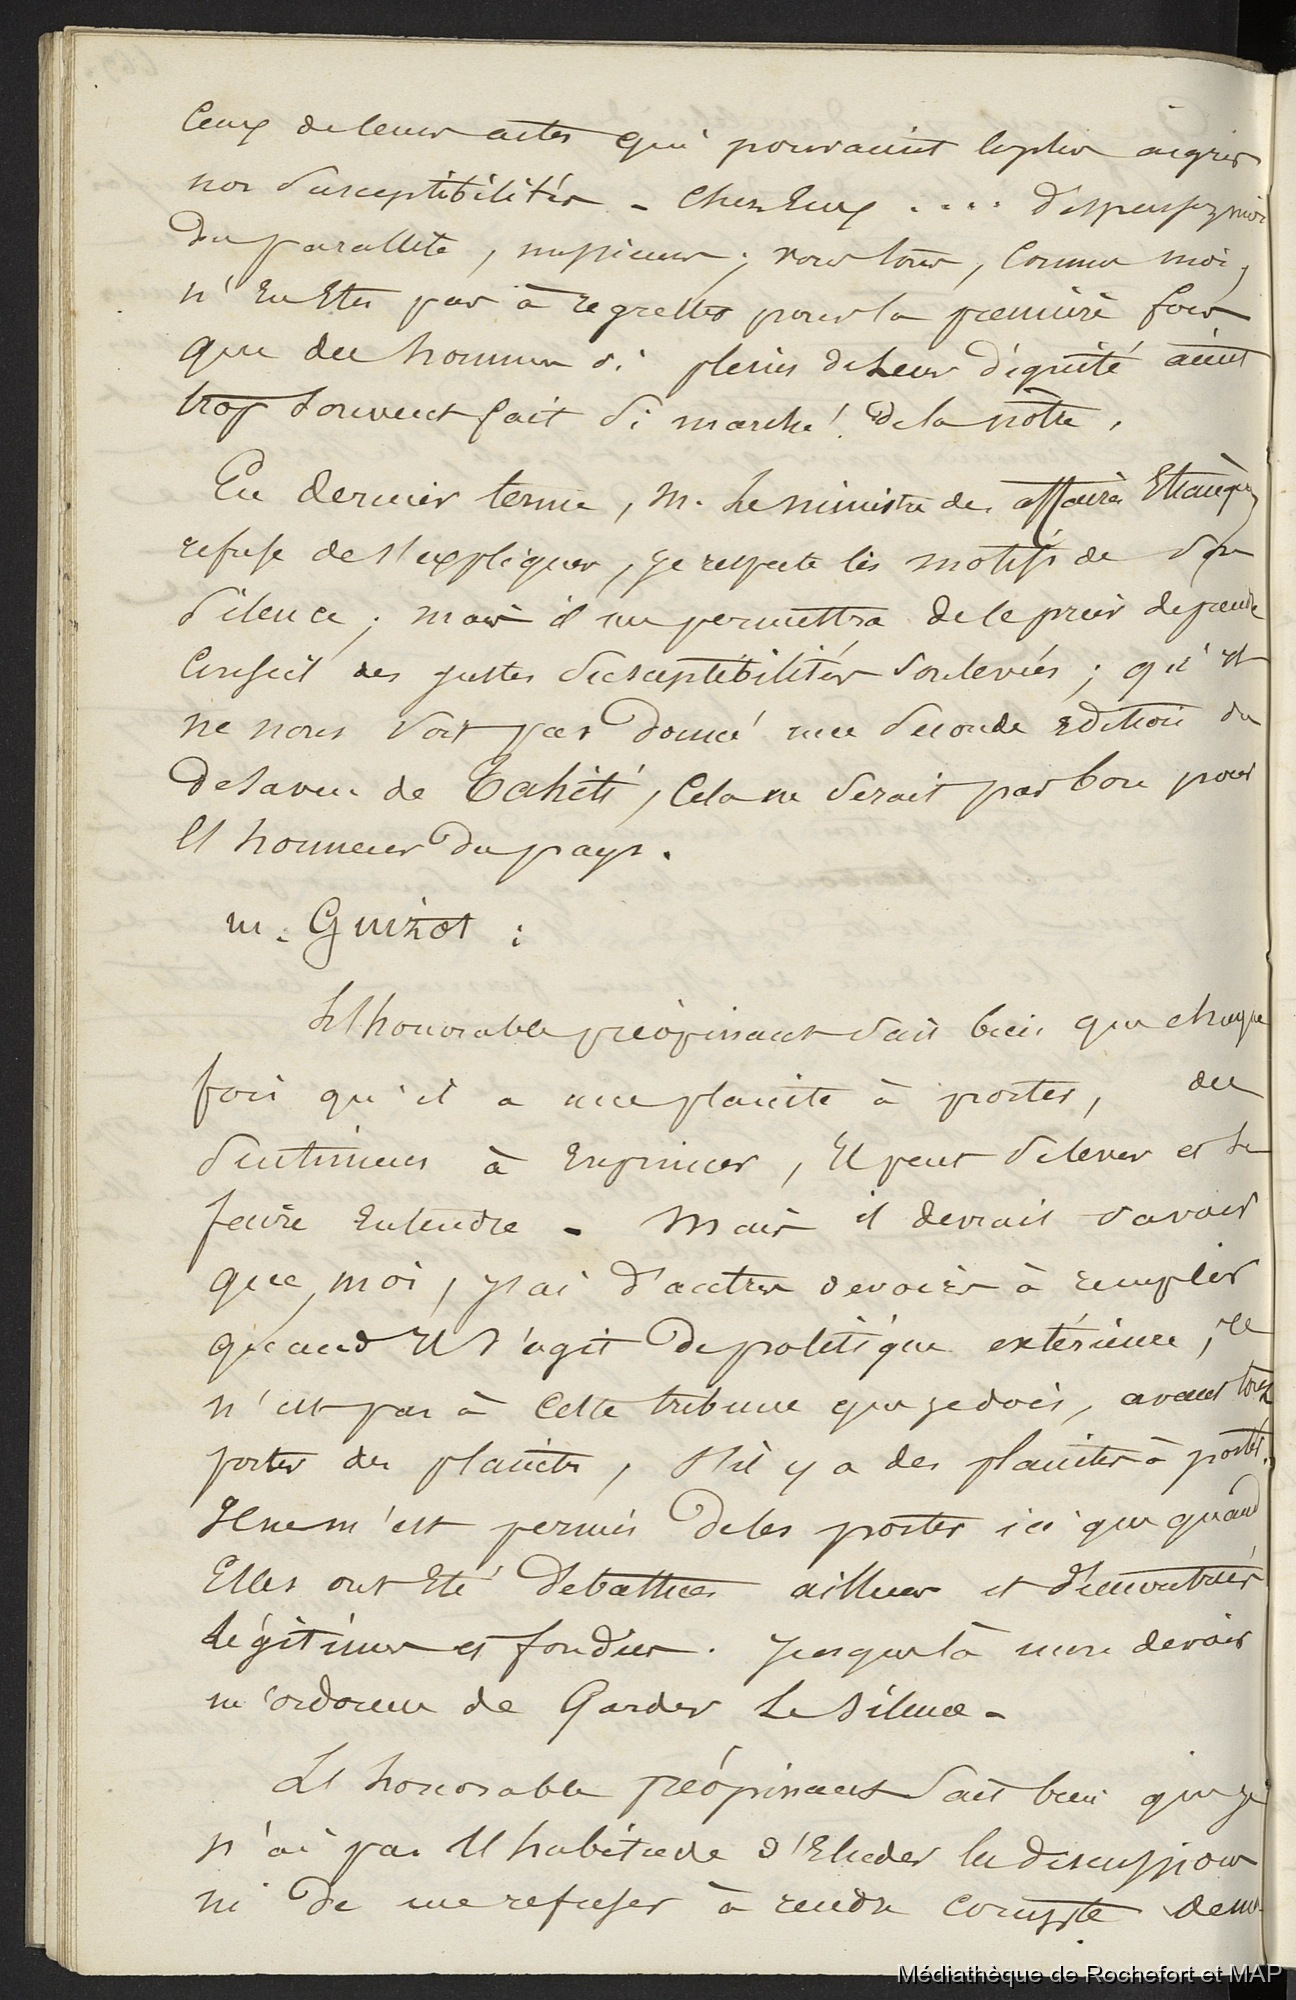 Ceux de leurs actes qui pouvaient le plus aigrir
nos susceptibilités - Chez Eux .... dispensez moi
du parallele, messieurs; vous tous, comme moi,
n'en Etes pas à regretter pour la première fois
que des hommes si pleins de Leur dignité aient
trop souvent fait si marché! De la nôtre.
En dernier terme, M. Le ministre des affaires Etrangères
refuse de s'expliquer, je respecte les motifs de son
silence; mais il me permettra de le prier de prendre
Conseil des justes susceptibilités soulevées; qu'il
ne nous soit pas donné une seconde Edition du
desaveu de Tahiti, Cela ne serait pas bon pour
l'honneur du pays.
M. Guizot :
L'honorable préopinant sait bien que chaque
fois qu'il a une plainte à porter, des
sentimens à Exprimer, Il peut s'élever et se
faire Entendre - Mais il devrait savoir
que, moi, j'ai d'autres devoirs à remplir
quand Il s'agit de politique extérieure; ce
n'est pas à Cette tribune que je dois, avant tout
porter des plaintes, s'il y a des plaintes à porter.
Il ne m'est permis de les porter ici que quand
Elles ont Eté débattues ailleurs et démontrées
Légitimes et fondées. Jusque là mon devoir
m'ordonne de Garder Le silence -
L'honorable préopinant sait bien que je
n'ai pas l'habitude d'Eluder la discussion
ni de me refuser à rendre Compte de mes
Médiathèque de Rochefort et MAP